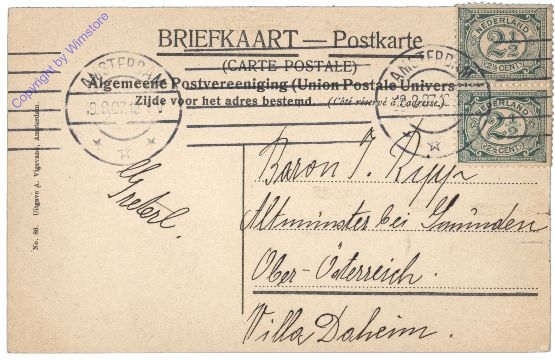 BRIEFKAART — Postkarte
(CARTE POSTALE)
Algemeene Postvereeniging (Union Postale Univers
Zijde voor het adres bestemd. (Côté réservé à l'adresse.)
Copyright by Wimstore
AMSTERDAM
AMSTERDAM
NEDERLAND
2½
(2½ CENT)
NEDERLAND
2½
(2½ CENT)
No. 80. Uitgave A. Vigevano, Amsterdam.
Greterl.
Baron J. Ripp
Altmünster bei Gmünden
Ober-Österreich.
Villa Daheim.